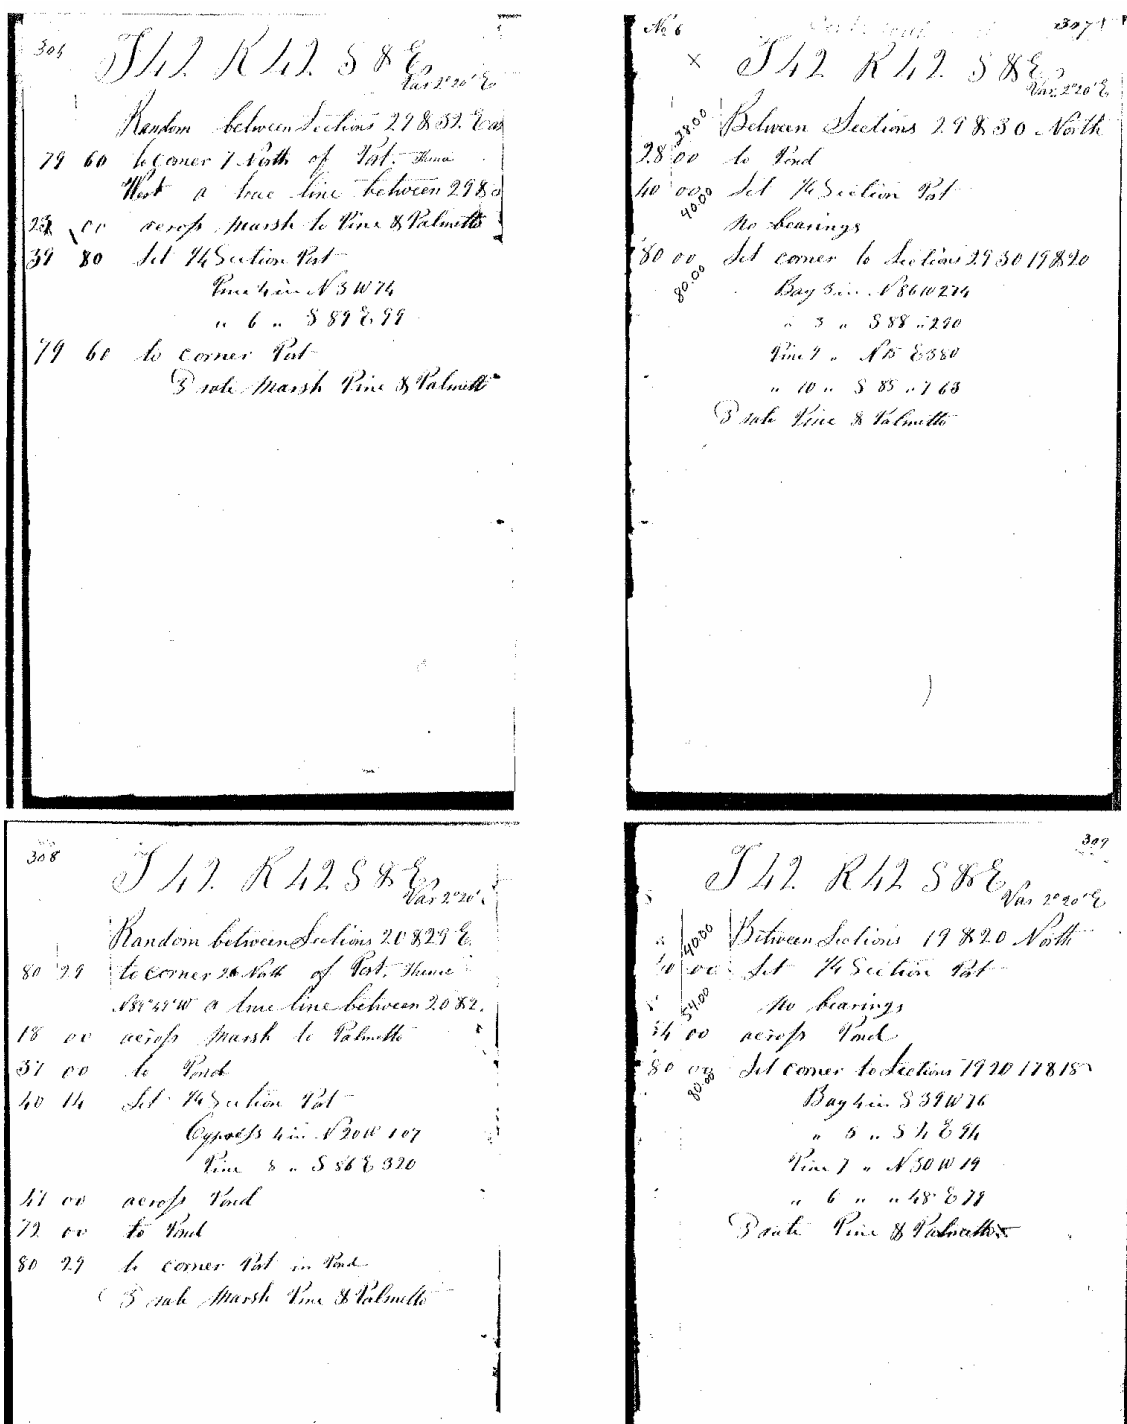 306
T 42. R 42. S & E.
Var 2°20' E
Random between Sections 29 & 32. Eas
79 60 to corner 7 North of Post. Thence
West a true line between 29 &
00 across Marsh to Pine & Palmetto
39 80 Set 1/4 Section Post
Pine 4 in N 3 W 74
" 6 " S 89 E 99
79 60 to corner Post
3 rate Marsh Pine & Palmetto
No 6
307
X T 42. R 42. S & E.
Var. 2°20' E
28.00 Between Sections 29 & 30 North
28 00 to Pond
40 00 Set 1/4 Section Post
40.00
No bearings
80 00 Set corner to Sections 29 30 19 & 20
80.00
Bay 3 in. N 86 W 274
" 3 " S 88 " 290
Pine 9 " N 15 E 380
" 10 " S 85 " 163
3 rate Pine & Palmetto
308
T 42. R 42 S & E.
Var 2°20'
Random between Sections 20 & 29 E.
80 29 to corner 26 North of Post. Thence
N 89°49' W a true line between 20 & 2.
18 00 across Marsh to Palmetto
37 00 to Pond
40 14 Set 1/4 Section Post
Cypress 4 in N 20 W 107
Pine 8 " S 86 E 320
41 00 across Pond
79 00 to Pond
80 29 to corner Post in Pond
3 rate Marsh Pine & Palmetto
309
T 42. R 42 S & E.
Var 2°20' E
40.00 Between Sections 19 & 20 North
40 00 Set 1/4 Section Post
54.00 No bearings
54 00 across Pond
80 00 Set corner to Sections 19 20 17 & 18
80.00
Bay 4 in S 39 W 76
" 5 " S 4 E 94
Pine 7 " N 50 W 19
" 6 " " 48 E 79
3 rate Pine & Palmetto